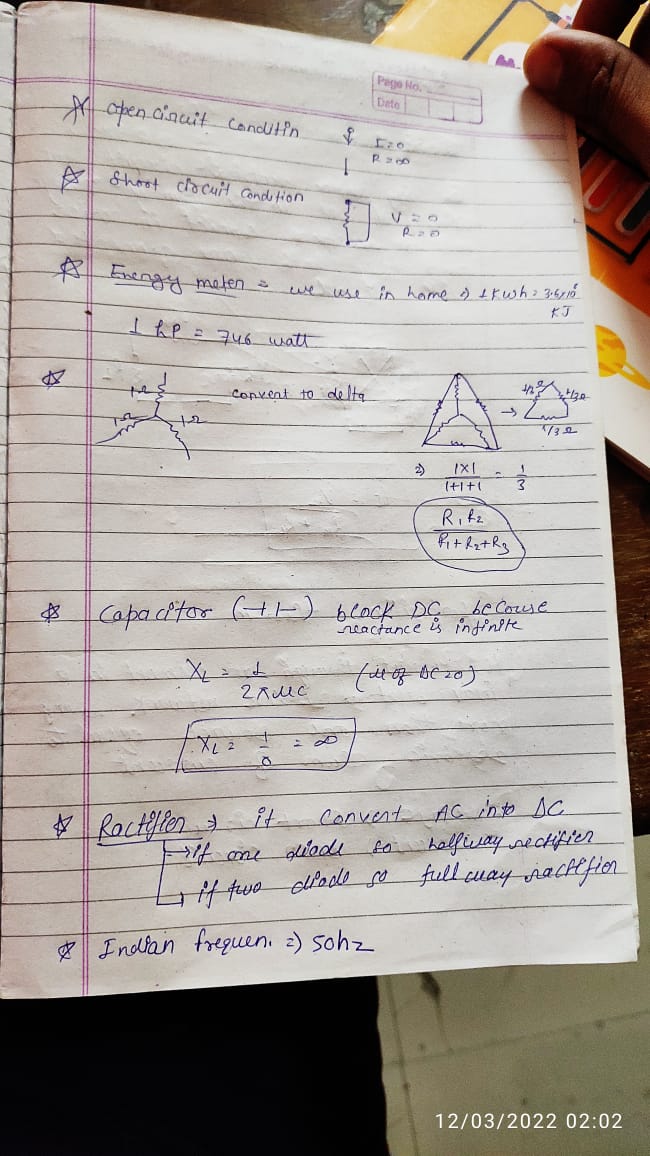 Page No.
Date
open circuit condutin
I=0
R=∞
Shoot circuit condition
V=0
R=0
Energy meter = we use in home ⇒ 1 kwh = 3.6x10
KJ
1 hp = 746 watt
1Ω
1Ω 1Ω
convert to delta
→ 1/3Ω
1/3Ω
⇒ 1X1/1+1+1 = 1/3
R1R2/R1+R2+R3
Capacitor (⊣⊢) block DC becouse
reactance is infinite
XL = 1/2πμC (μ of DC=0)
XL = 1/0 = ∞
Ractifier ⇒ it convert AC into DC
→ if one diode so halfway rectifier
→ if two diode so full way ractifior
Indian frequen. ⇒ 50hz
12/03/2022 02:02